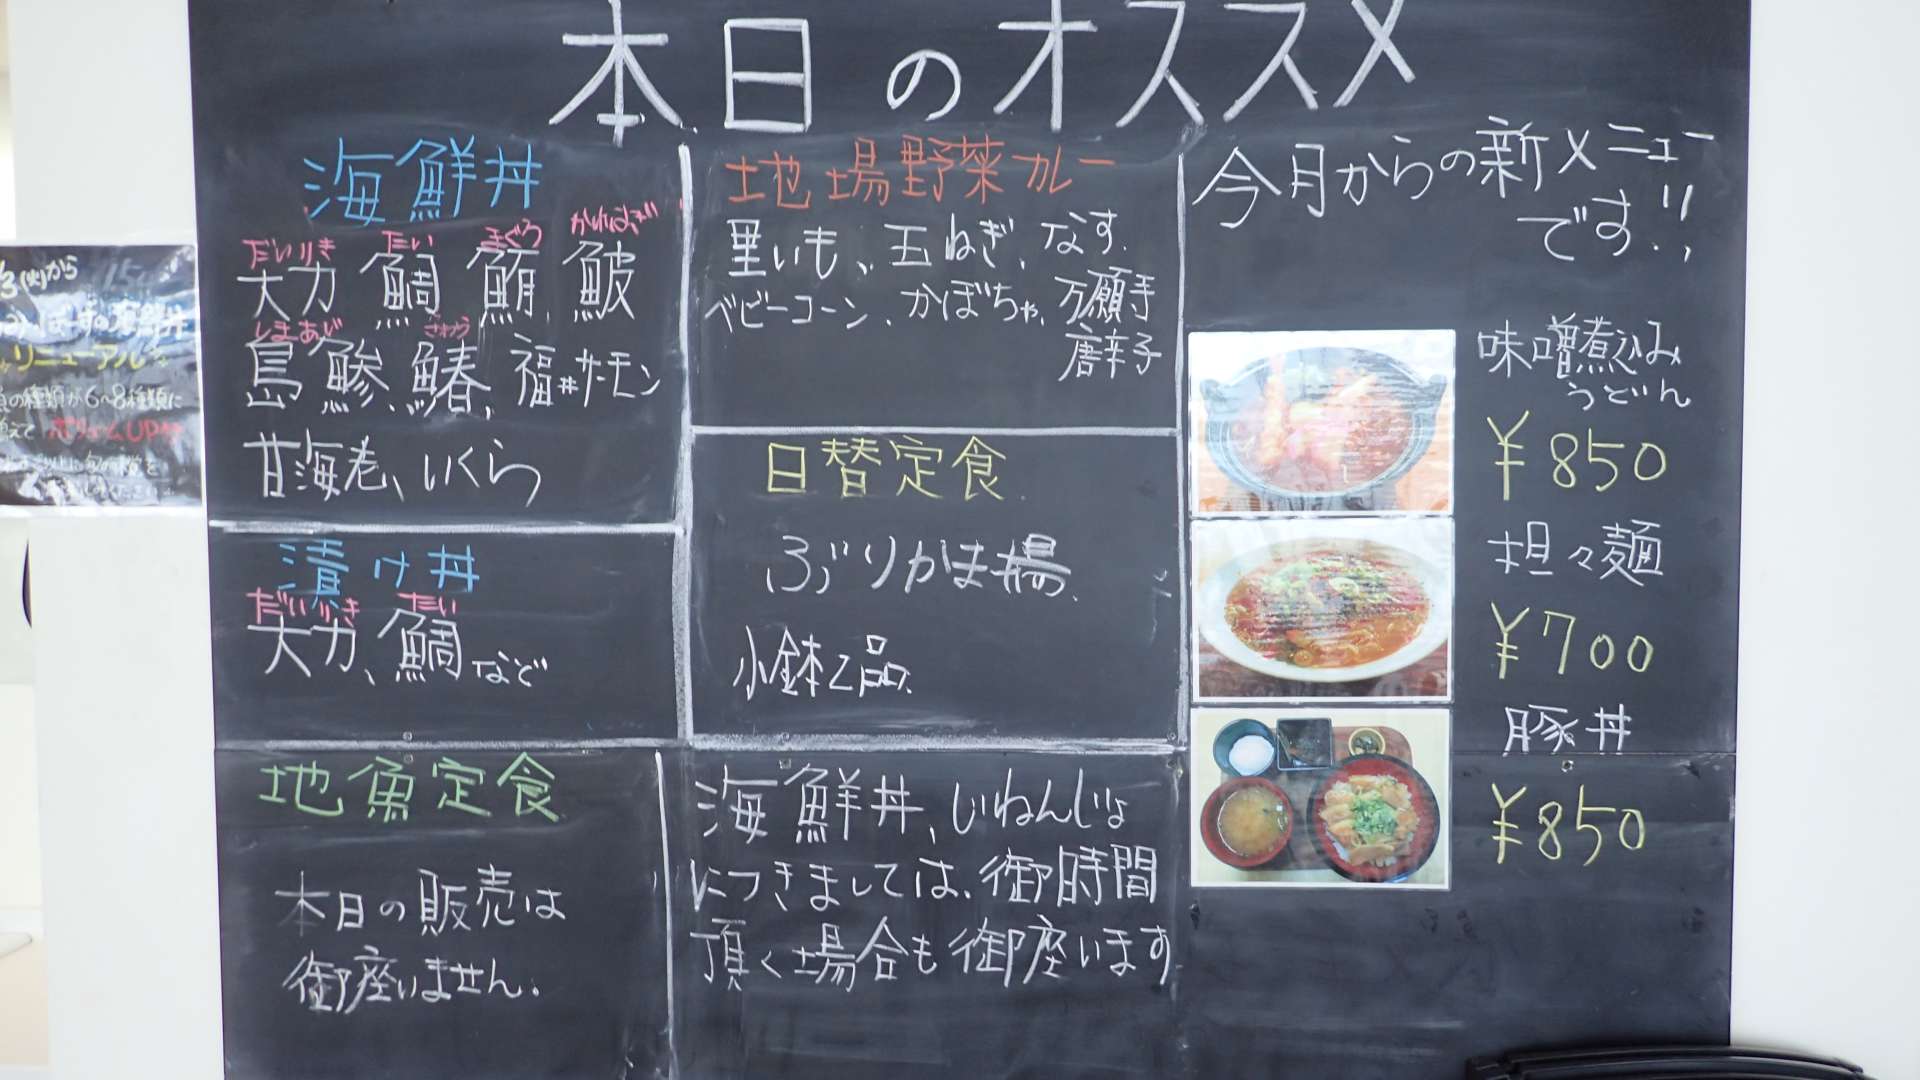 本日のオススメ
海鮮丼
だいりき たい まぐろ
大力 鯛 鮪、鮍
しまあじ さわら
島鯵、鰆、福井サーモン
甘海老、いくら
漬け丼
だいりき たい
大力、鯛など
地魚定食
本日の販売は
御座いません。
地場野菜カレー
里いも、玉ねぎ、なす、
ベビーコーン、かぼちゃ、万願寺
唐辛子
日替定食
ぶりかま揚
小鉢2品
海鮮丼、じねんじょ
につきましては、御時間
頂く場合も御座います
今月からの新メニュー
です!!
味噌煮込み
うどん
¥850
担々麺
¥700
豚丼
¥850
リニューアル
の種類が6〜8種類に
ボリュームUP